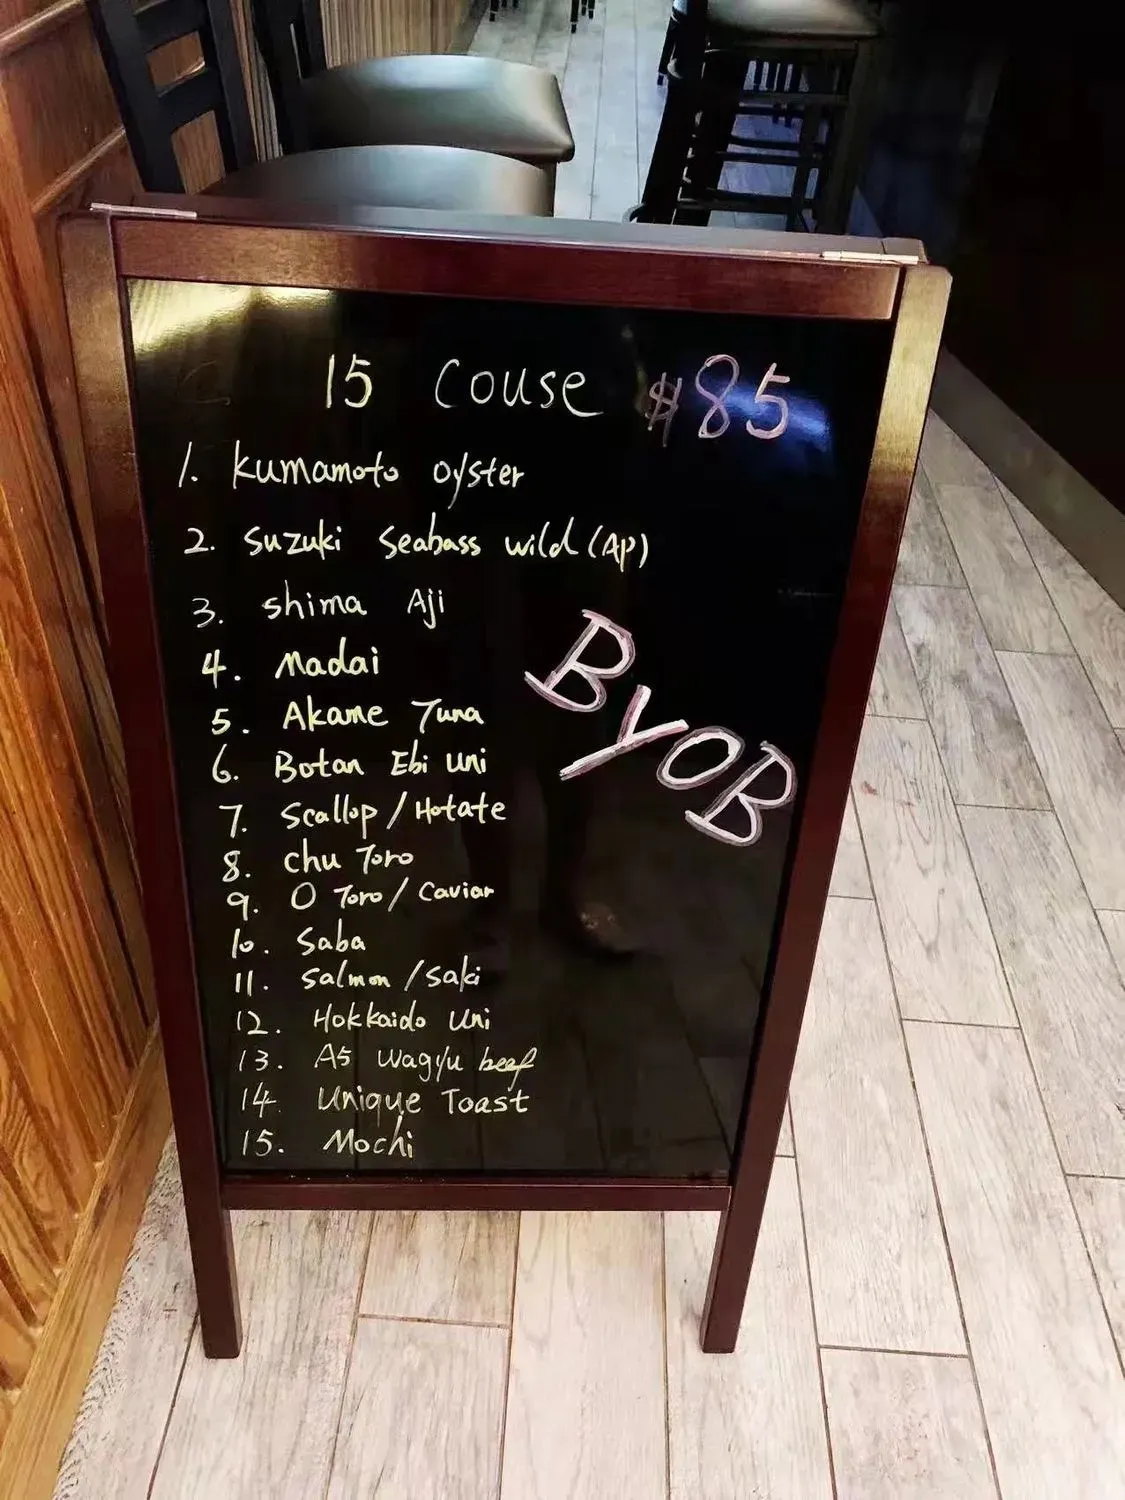 15 Couse $85
1. Kumamoto oyster
2. Suzuki Seabass wild (Ap)
3. Shima Aji
4. Madai
5. Akame Tuna
6. Botan Ebi Uni
7. Scallop / Hotate
8. Chu Toro
9. O Toro / Caviar
10. Saba
11. Salmon / Saki
12. Hokkaido Uni
13. A5 Wagyu beef
14. Unique Toast
15. Mochi
BYOB